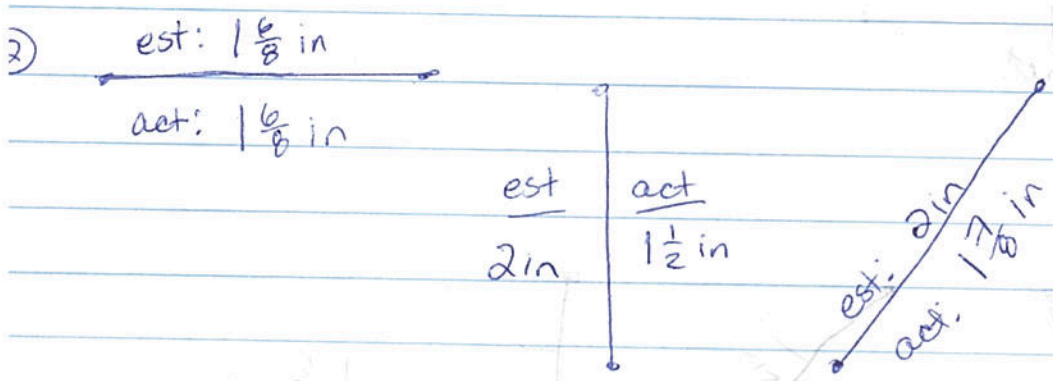 2
est: 1 6/8 in
act: 1 6/8 in
est
2in
act
1 1/2 in
est: 2in
act: 1 7/8 in